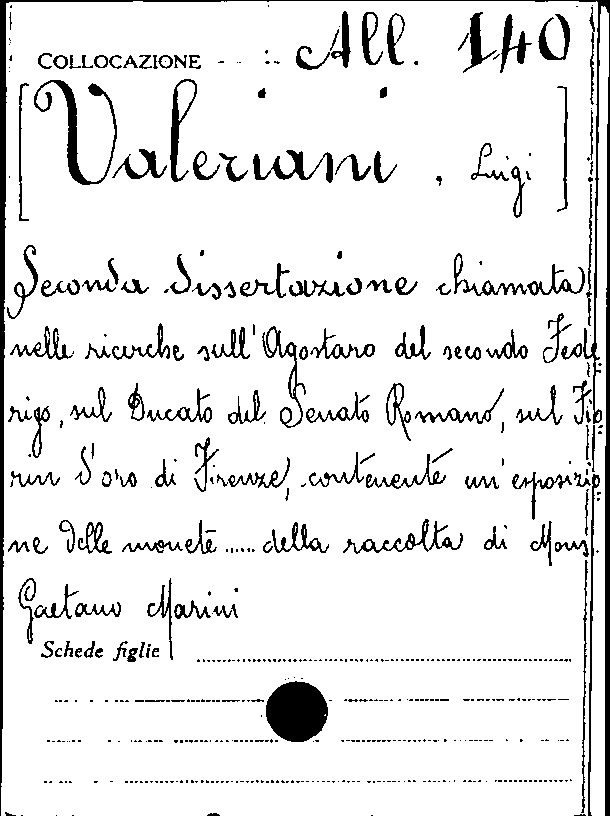 COLLOCAZIONE - - :- All. 140
[Valeriani, Luigi]
Seconda dissertazione chiamata
nelle ricerche sull'Agostaro del secondo Fede
rigo, sul Ducato del Senato Romano, sul Fio
rin d'oro di Firenze, contenente un'esposizio
ne delle monete ...... della raccolta di Mons.
Gaetano Marini
Schede figlie